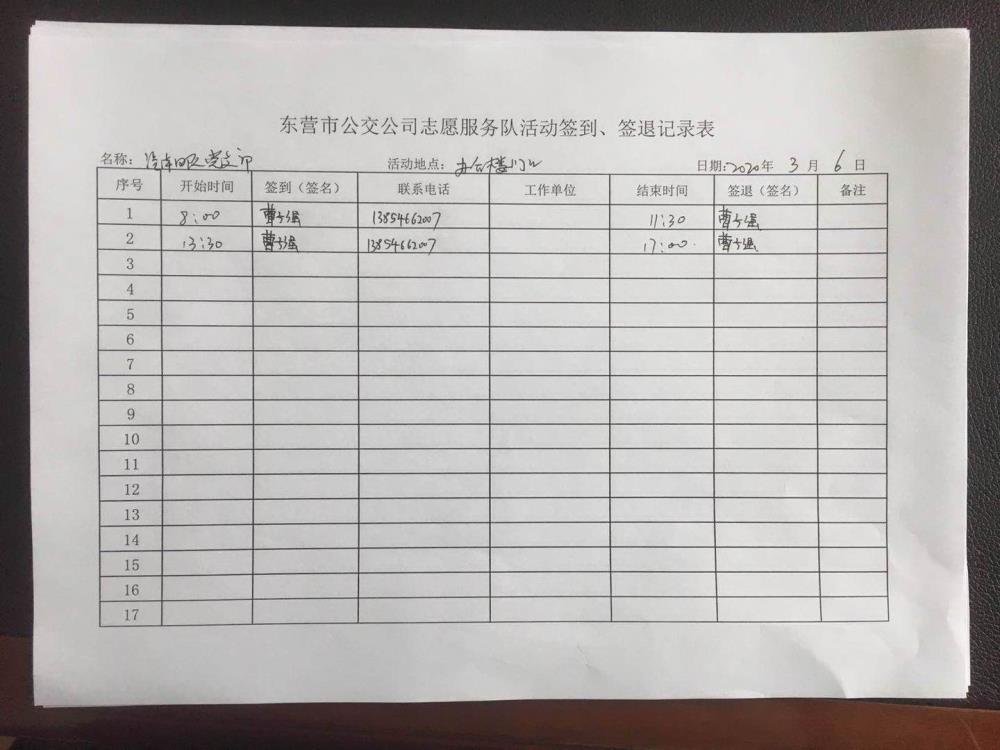 东营市公交公司志愿服务队活动签到、签退记录表
名称：汽车四队党支部 活动地点：办公楼门口 日期：2020年 3 月 6 日
序号 开始时间 签到（签名） 联系电话 工作单位 结束时间 签退（签名） 备注
1 8:00 曹子强 13854662007 11:30 曹子强
2 13:30 曹子强 13854662007 17:00 曹子强
3
4
5
6
7
8
9
10
11
12
13
14
15
16
17